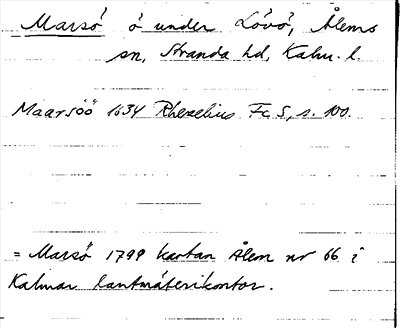 Marsö ö under Lövö, Ålems
sn, Stranda hd, Kalm. l.
Maarsöö 1634 Rhezelius Fc 5, s. 100.
= Marsö 1799 kartan Ålem nr 66 i
Kalmar lantmäterikontor.